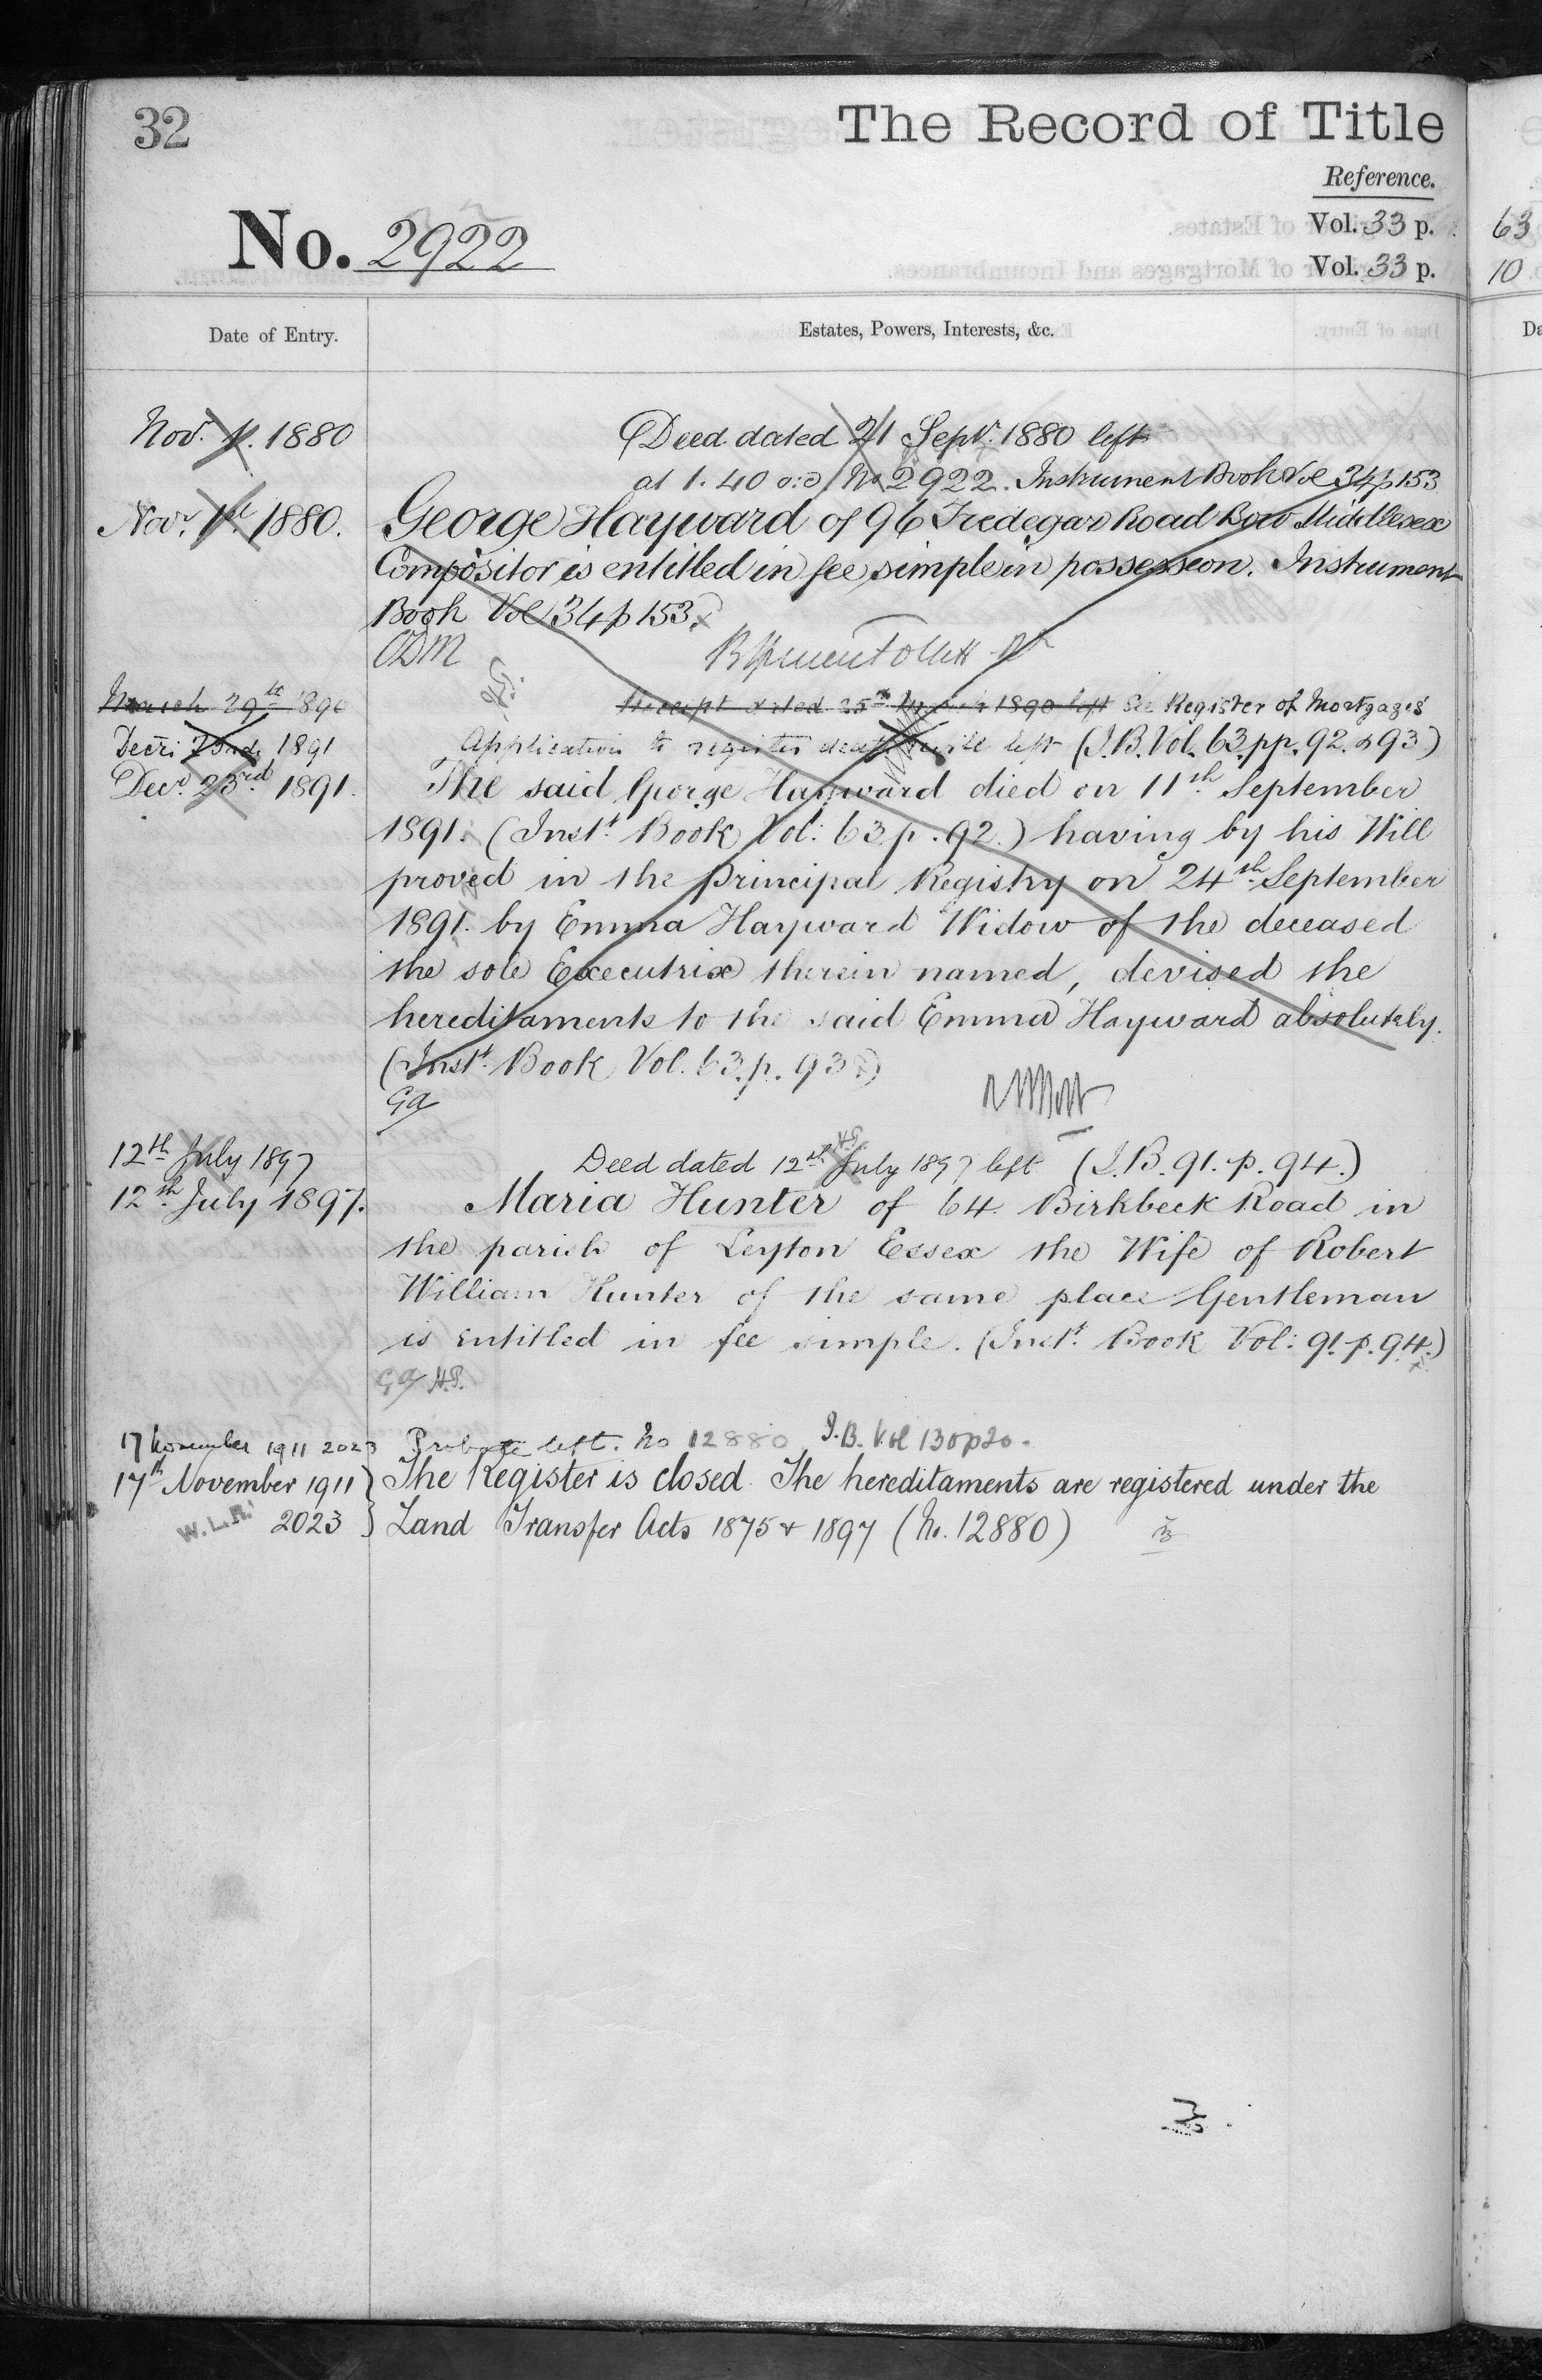 32
The Record of Title
Reference.
No. 2922
Vol. 33 p. 63
Vol. 33 p. 10
Date of Entry.
Estates, Powers, Interests, &c.
Nov. 1. 1880
Deed dated 21 Sept. 1880 left
at 1.40 No 2922. Instrument Book Vol 34 p 153
Novr. 1st 1880.
George Hayward of 96 Tredegar Road Bow Middlesex
Compositor is entitled in fee simple in possession. Instrument
Book Vol 34 p 153.
ODM
March 29th 1890
Receipt dated 25th March 1890 left See Register of Mortgages
Decr. 1891
Application to register death & will left (I.B. Vol. 63. pp. 92. & 93)
Decr. 23rd 1891.
The said George Hayward died on 11th September
1891. (Instt. Book Vol: 63. p. 92.) having by his Will
proved in the Principal Registry on 24th September
1891. by Emma Hayward Widow of the deceased
the sole Executrix therein named, devised the
hereditaments to the said Emma Hayward absolutely.
(Instt. Book Vol. 63. p. 93.)
GA
12th July 1897
Deed dated 12th July 1897 left (I.B. 91. p. 94.)
12th July 1897.
Maria Hunter of 64 Birkbeck Road in
the parish of Leyton Essex the Wife of Robert
William Hunter of the same place Gentleman
is entitled in fee simple. (Instt. Book Vol: 91. p. 94.)
GA H.P.
17 November 1911 2023
Probate left. No 12880 I.B. Vol 130 p 20.
17th November 1911
The Register is closed. The hereditaments are registered under the
W.L.R. 2023
Land Transfer Acts 1875 & 1897 (No. 12880)